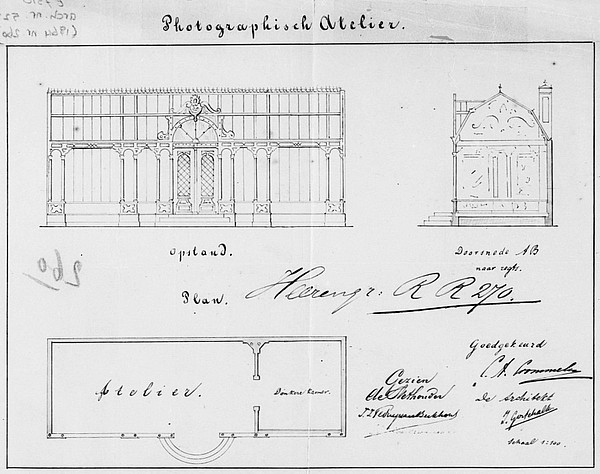 Photographisch Atelier.
Opstand.
Doorsnede AB
naar regts.
Plan.
Heerengr: R R 270.
260
Atelier.
Donkere kamer.
Gezien
de Wethouder
Goedgekeurd
De Architekt
Schaal 1:100.